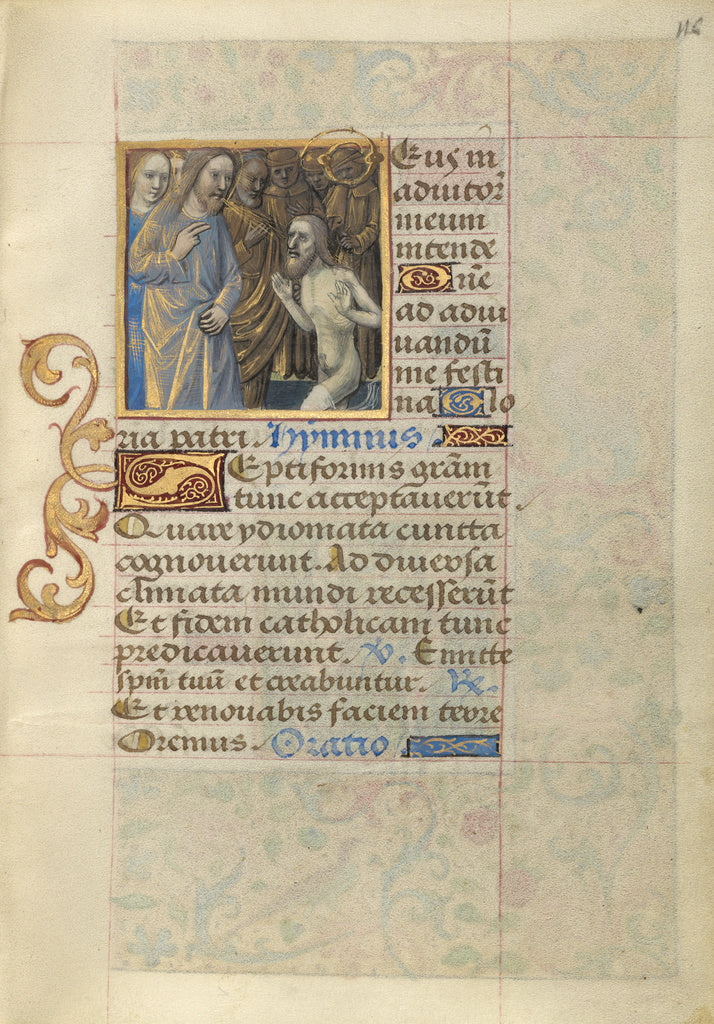 116
Eus in
adiutoꝛ
meum
intende
Dn̄e
ad adiu
uandū
me festi
na Glo
ria patri. Hymnus.
Septiformis grām
tunc acceptauerūt
Quare ydiomata cuntta
cognouerunt. Ad diuersa
climata mundi recesserūt
Et fidem catholicam tunc
predicauerunt. V. Emitte
spm̄ tuū et creabuntur. Re.
Et renouabis faciem terre
Oremus. Oratio